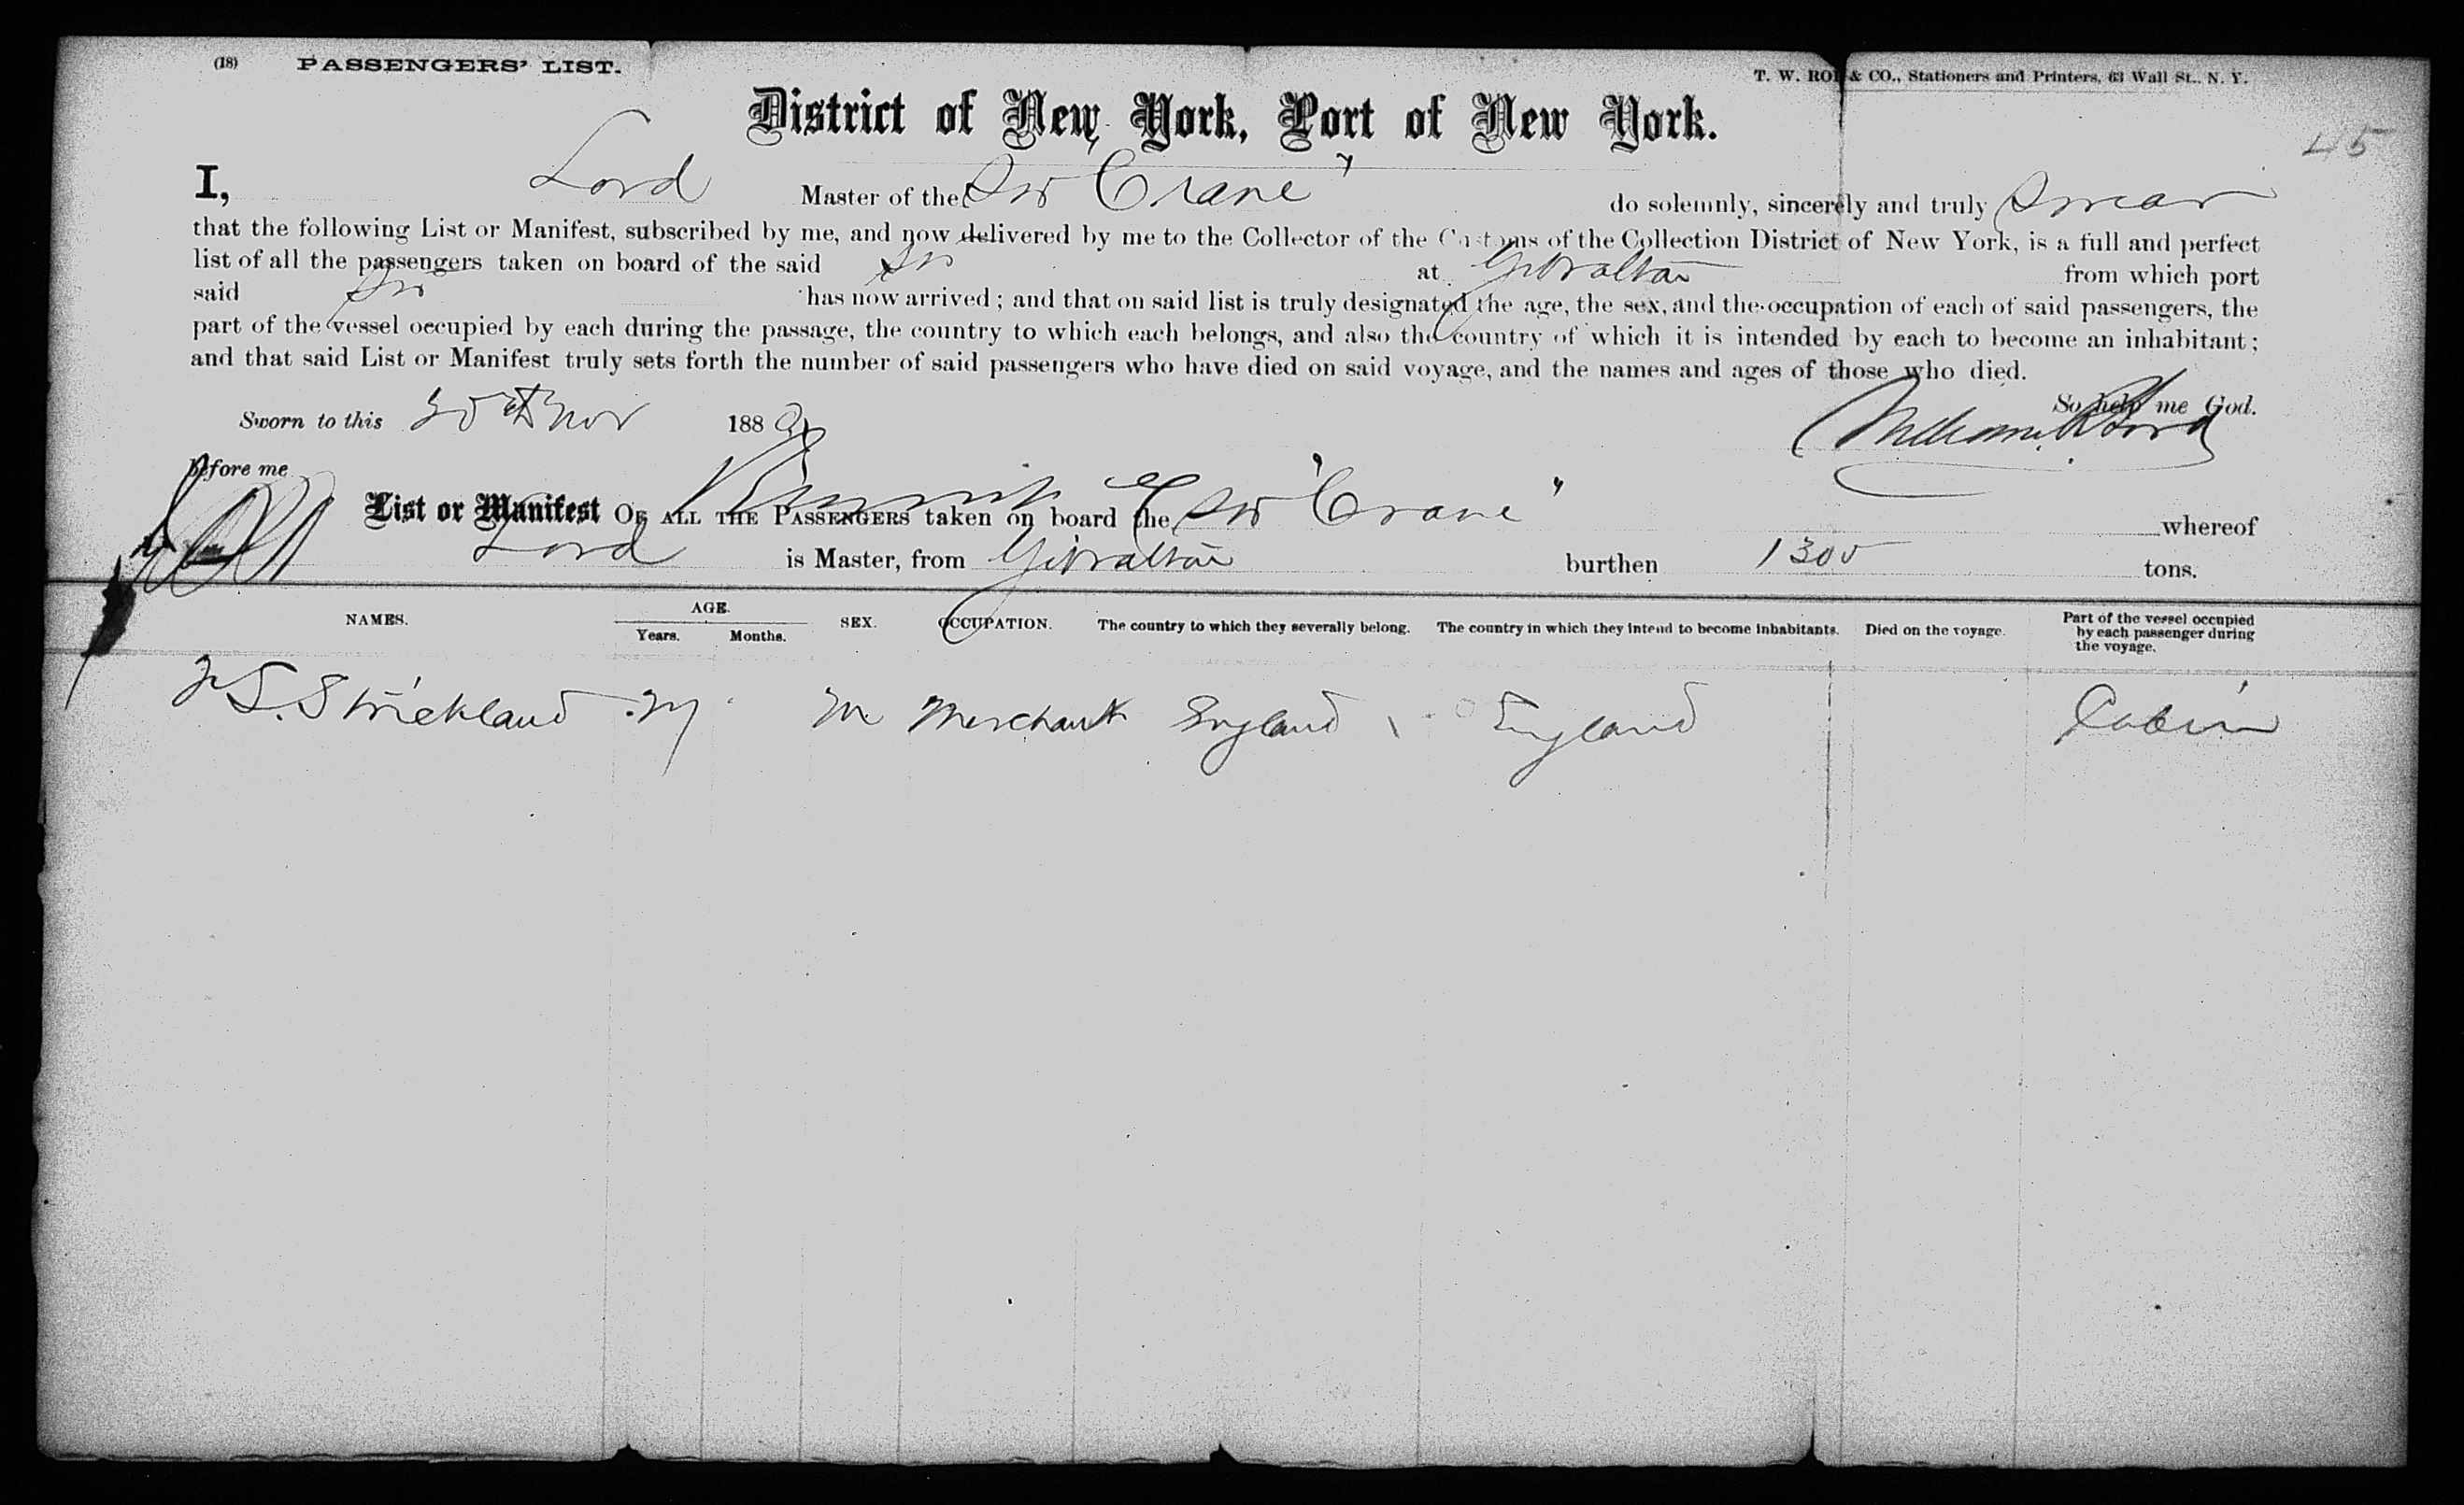 (18) PASSENGERS' LIST.
T. W. ROE & CO., Stationers and Printers, 63 Wall St., N. Y.
District of New York, Port of New York.
45
I, Lord Master of the SW "Crane" do solemnly, sincerely and truly Swear
that the following List or Manifest, subscribed by me, and now delivered by me to the Collector of the Customs of the Collection District of New York, is a full and perfect
list of all the passengers taken on board of the said at Gibraltar from which port
said has now arrived; and that on said list is truly designated the age, the sex, and the occupation of each of said passengers, the
part of the vessel occupied by each during the passage, the country to which each belongs, and also the country of which it is intended by each to become an inhabitant;
and that said List or Manifest truly sets forth the number of said passengers who have died on said voyage, and the names and ages of those who died.
So help me God.
Sworn to this 30th Nov 188
before me
List or Manifest OF ALL THE PASSENGERS taken on board the "Crane" whereof
Lord is Master, from Gibraltar burthen 1300 tons.
NAMES. AGE. Years. Months. SEX. OCCUPATION. The country to which they severally belong. The country in which they intend to become inhabitants. Died on the voyage. Part of the vessel occupied by each passenger during the voyage.
S. Strickland M Merchant England England Cabin